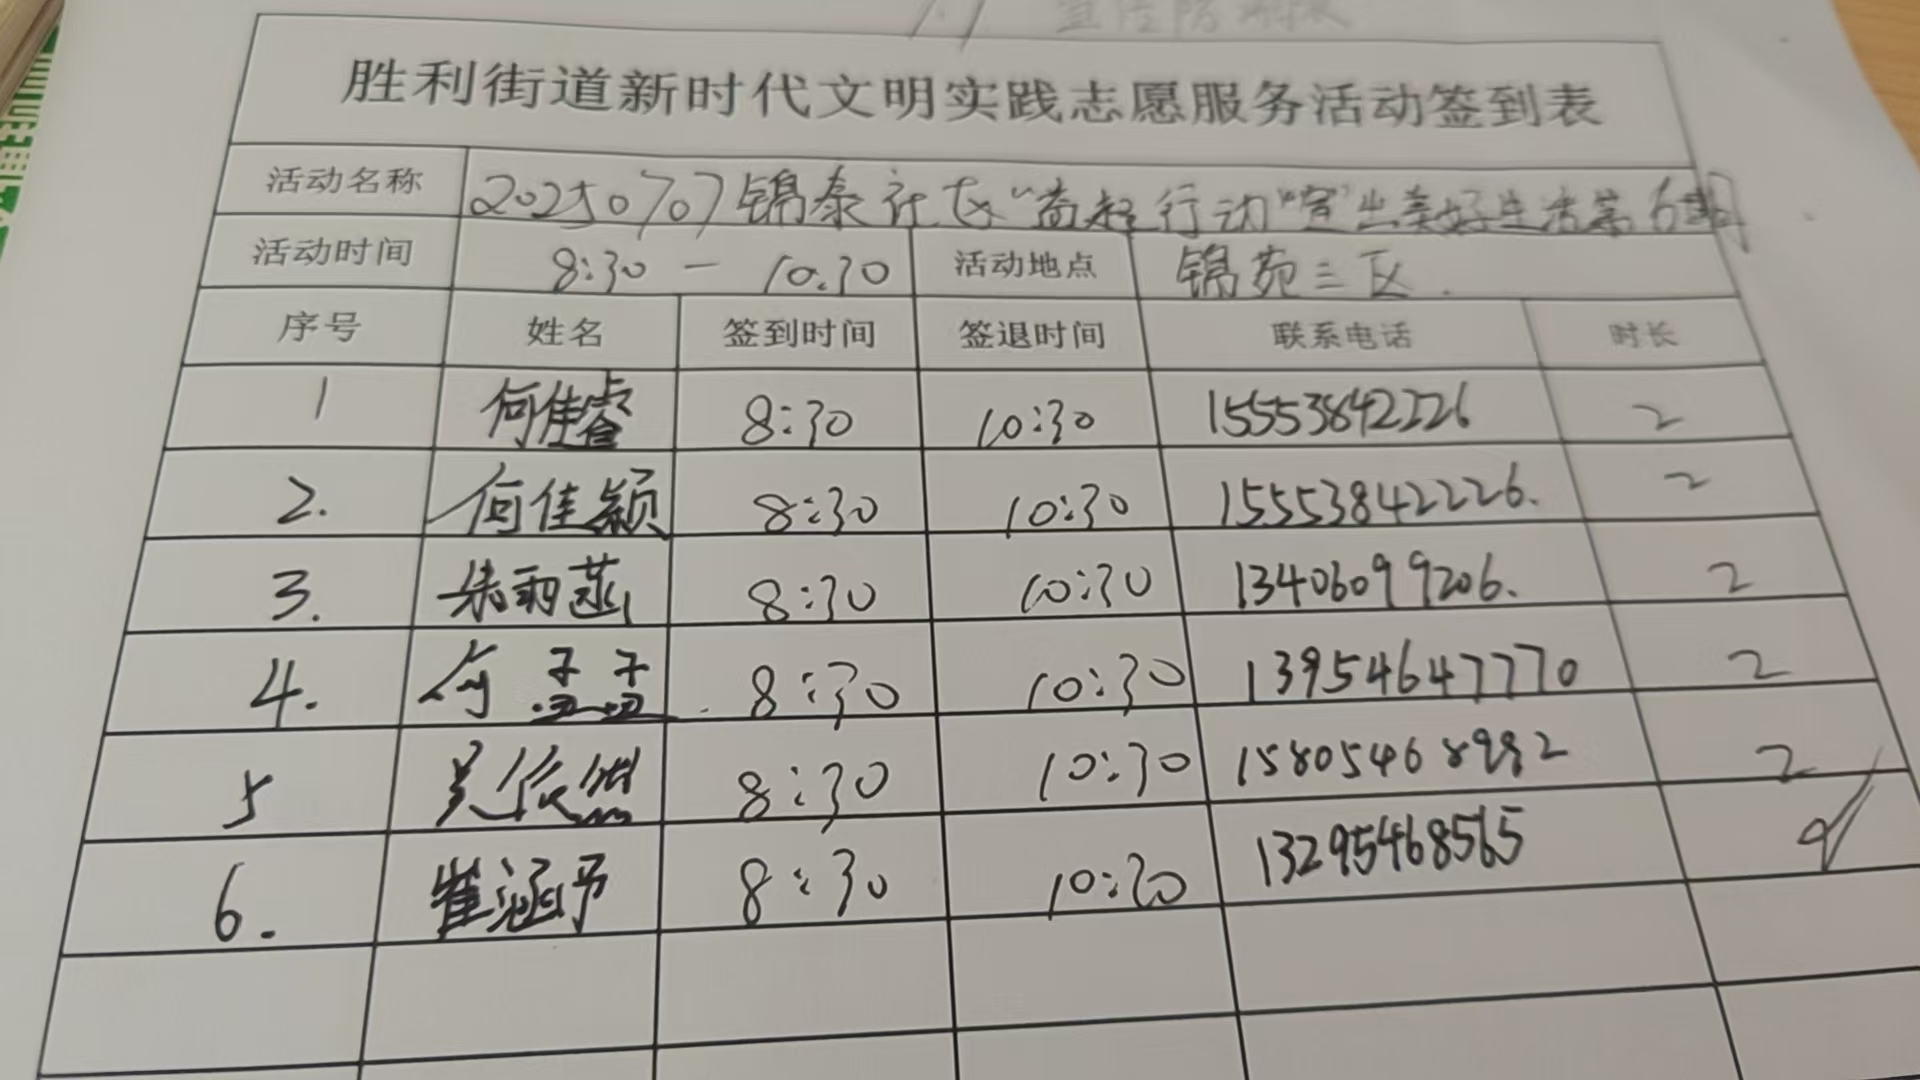 胜利街道新时代文明实践志愿服务活动签到表
活动名称 20250707锦泰社区“益起行动”“宣”出美好生活第6期
活动时间 8:30 — 10:30 活动地点 锦苑三区.
序号 姓名 签到时间 签退时间 联系电话 时长
1 何佳睿 8:30 10:30 15553842226 2
2. 何佳颖 8:30 10:30 15553842226. 2
3. 朱雨菡 8:30 10:30 13406099206. 2
4. 何孟孟 8:30 10:30 13954647770 2
5 吴依燃 8:30 10:30 15805468982 2
6. 崔涵予 8:30 10:30 13295468565